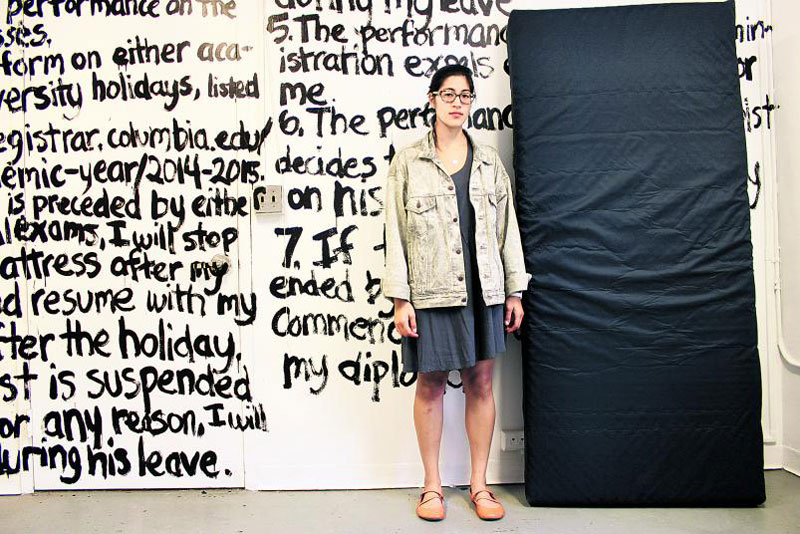 performance on the
sses.
form on either aca-
versity holidays, listed
egistrar.columbia.edu/
emic-year/2014-2015.
is preceded by either
exams, I will stop
attress after my
d resume with my
fter the holiday.
st is suspended
or any reason, I will
during his leave.
during my leave
5. The performanc
istration expels
me.
6. The performanc
decides t
on his
7. If
ended by
Commenc
my diplo
min-
or
ist
y